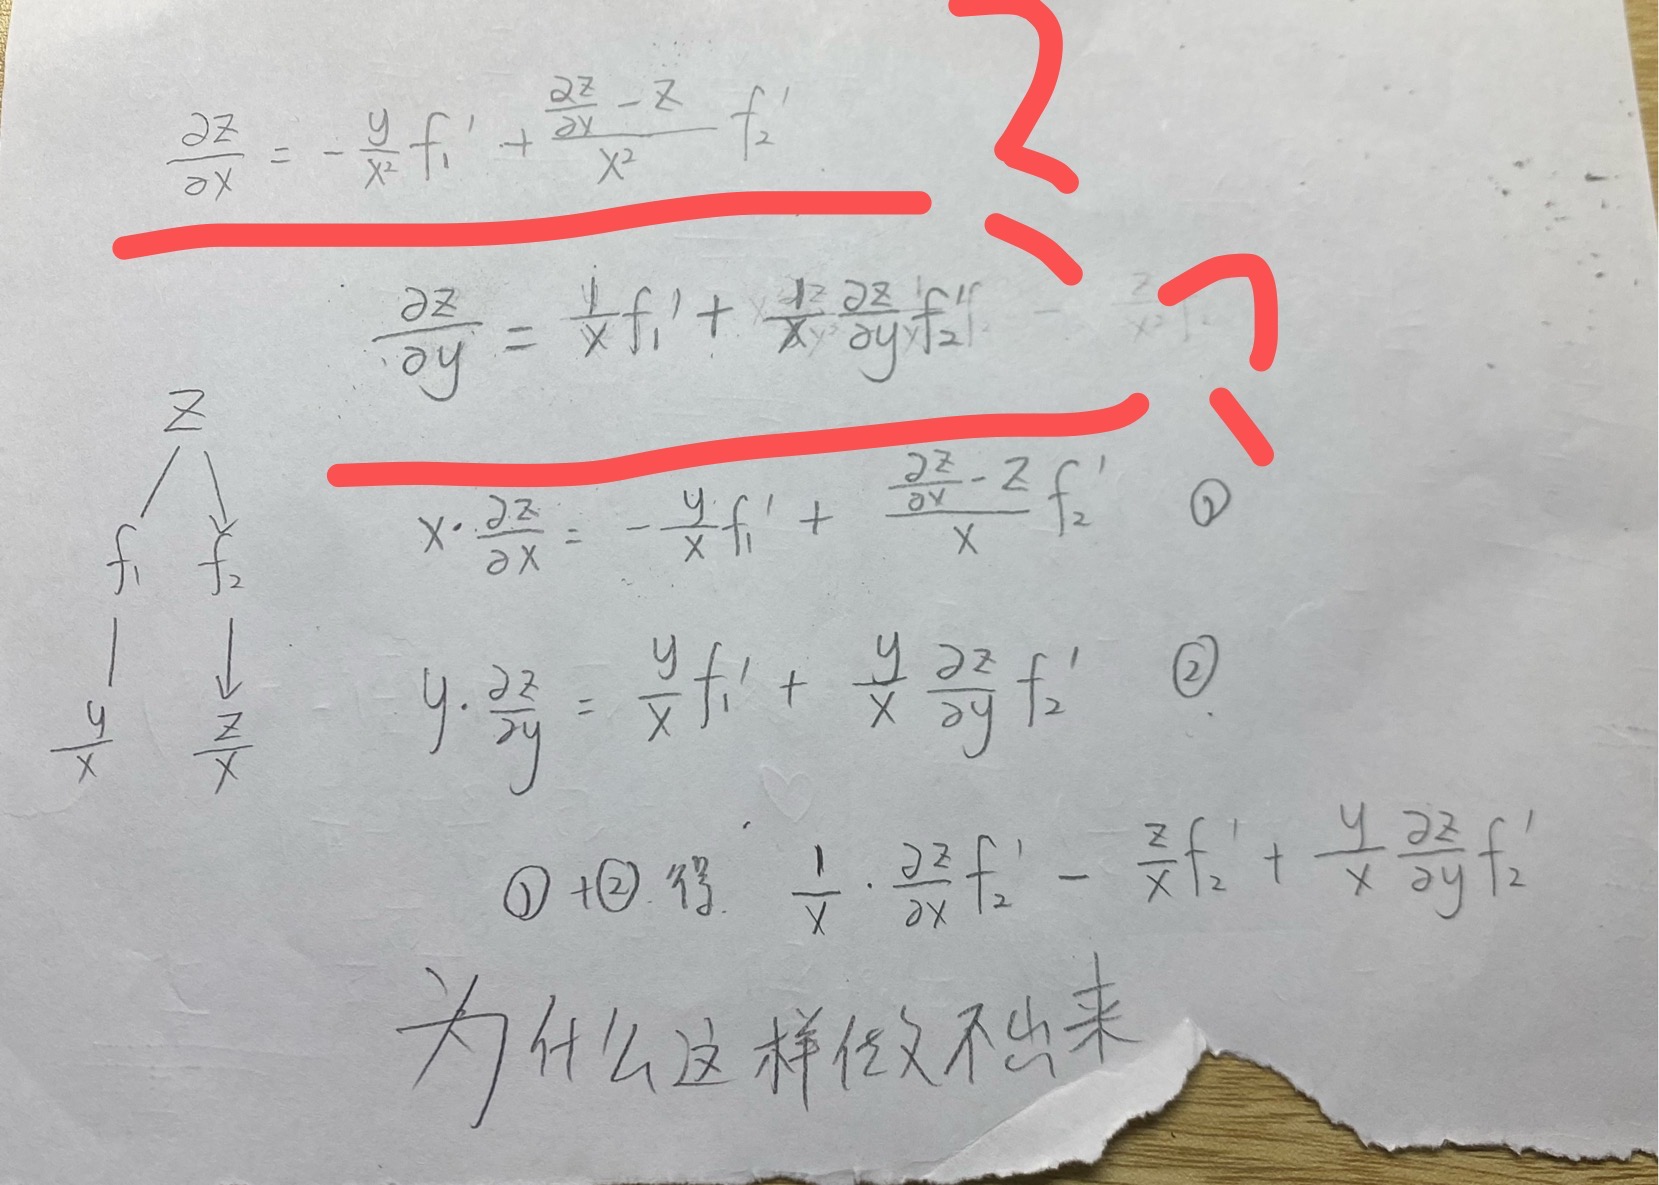 ∂z/∂x = - y/x² f₁' + (∂z/∂x - z)/x² f₂'
∂z/∂y = 1/x f₁' + 1/x ∂z/∂y f₂'
z
f₁ f₂
y/x z/x
x·∂z/∂x = - y/x f₁' + (∂z/∂x - z)/x f₂' ①
y·∂z/∂y = y/x f₁' + y/x ∂z/∂y f₂' ②
①+② 得 1/x · ∂z/∂x f₂' - z/x f₂' + y/x ∂z/∂y f₂'
为什么这样做不出来